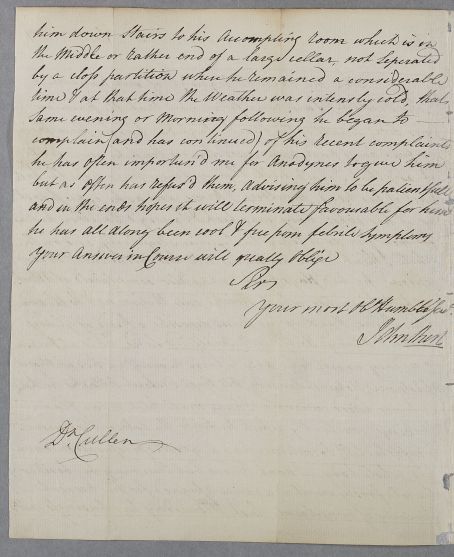 him down Stairs to his Accompting room which is in
the Middle or rather end of a large Cellar, not Seperated
by a closs partition where he remained a considerable
time & at that time the Weather was intensly cold, that
same evening or Morning following he began to
complain (and has continued) of his recent complaints
he has often importun'd me for Anodynes to give him
but as often has refus'd them, advising him to be patient
and in the end hopes it will terminate favourable for him
he has all along been cool & free from febrile Symptoms
Your Answer in Course will greatly Oblige
Sir
Your most Ob Humble Servt.
John
Dr. Cullen